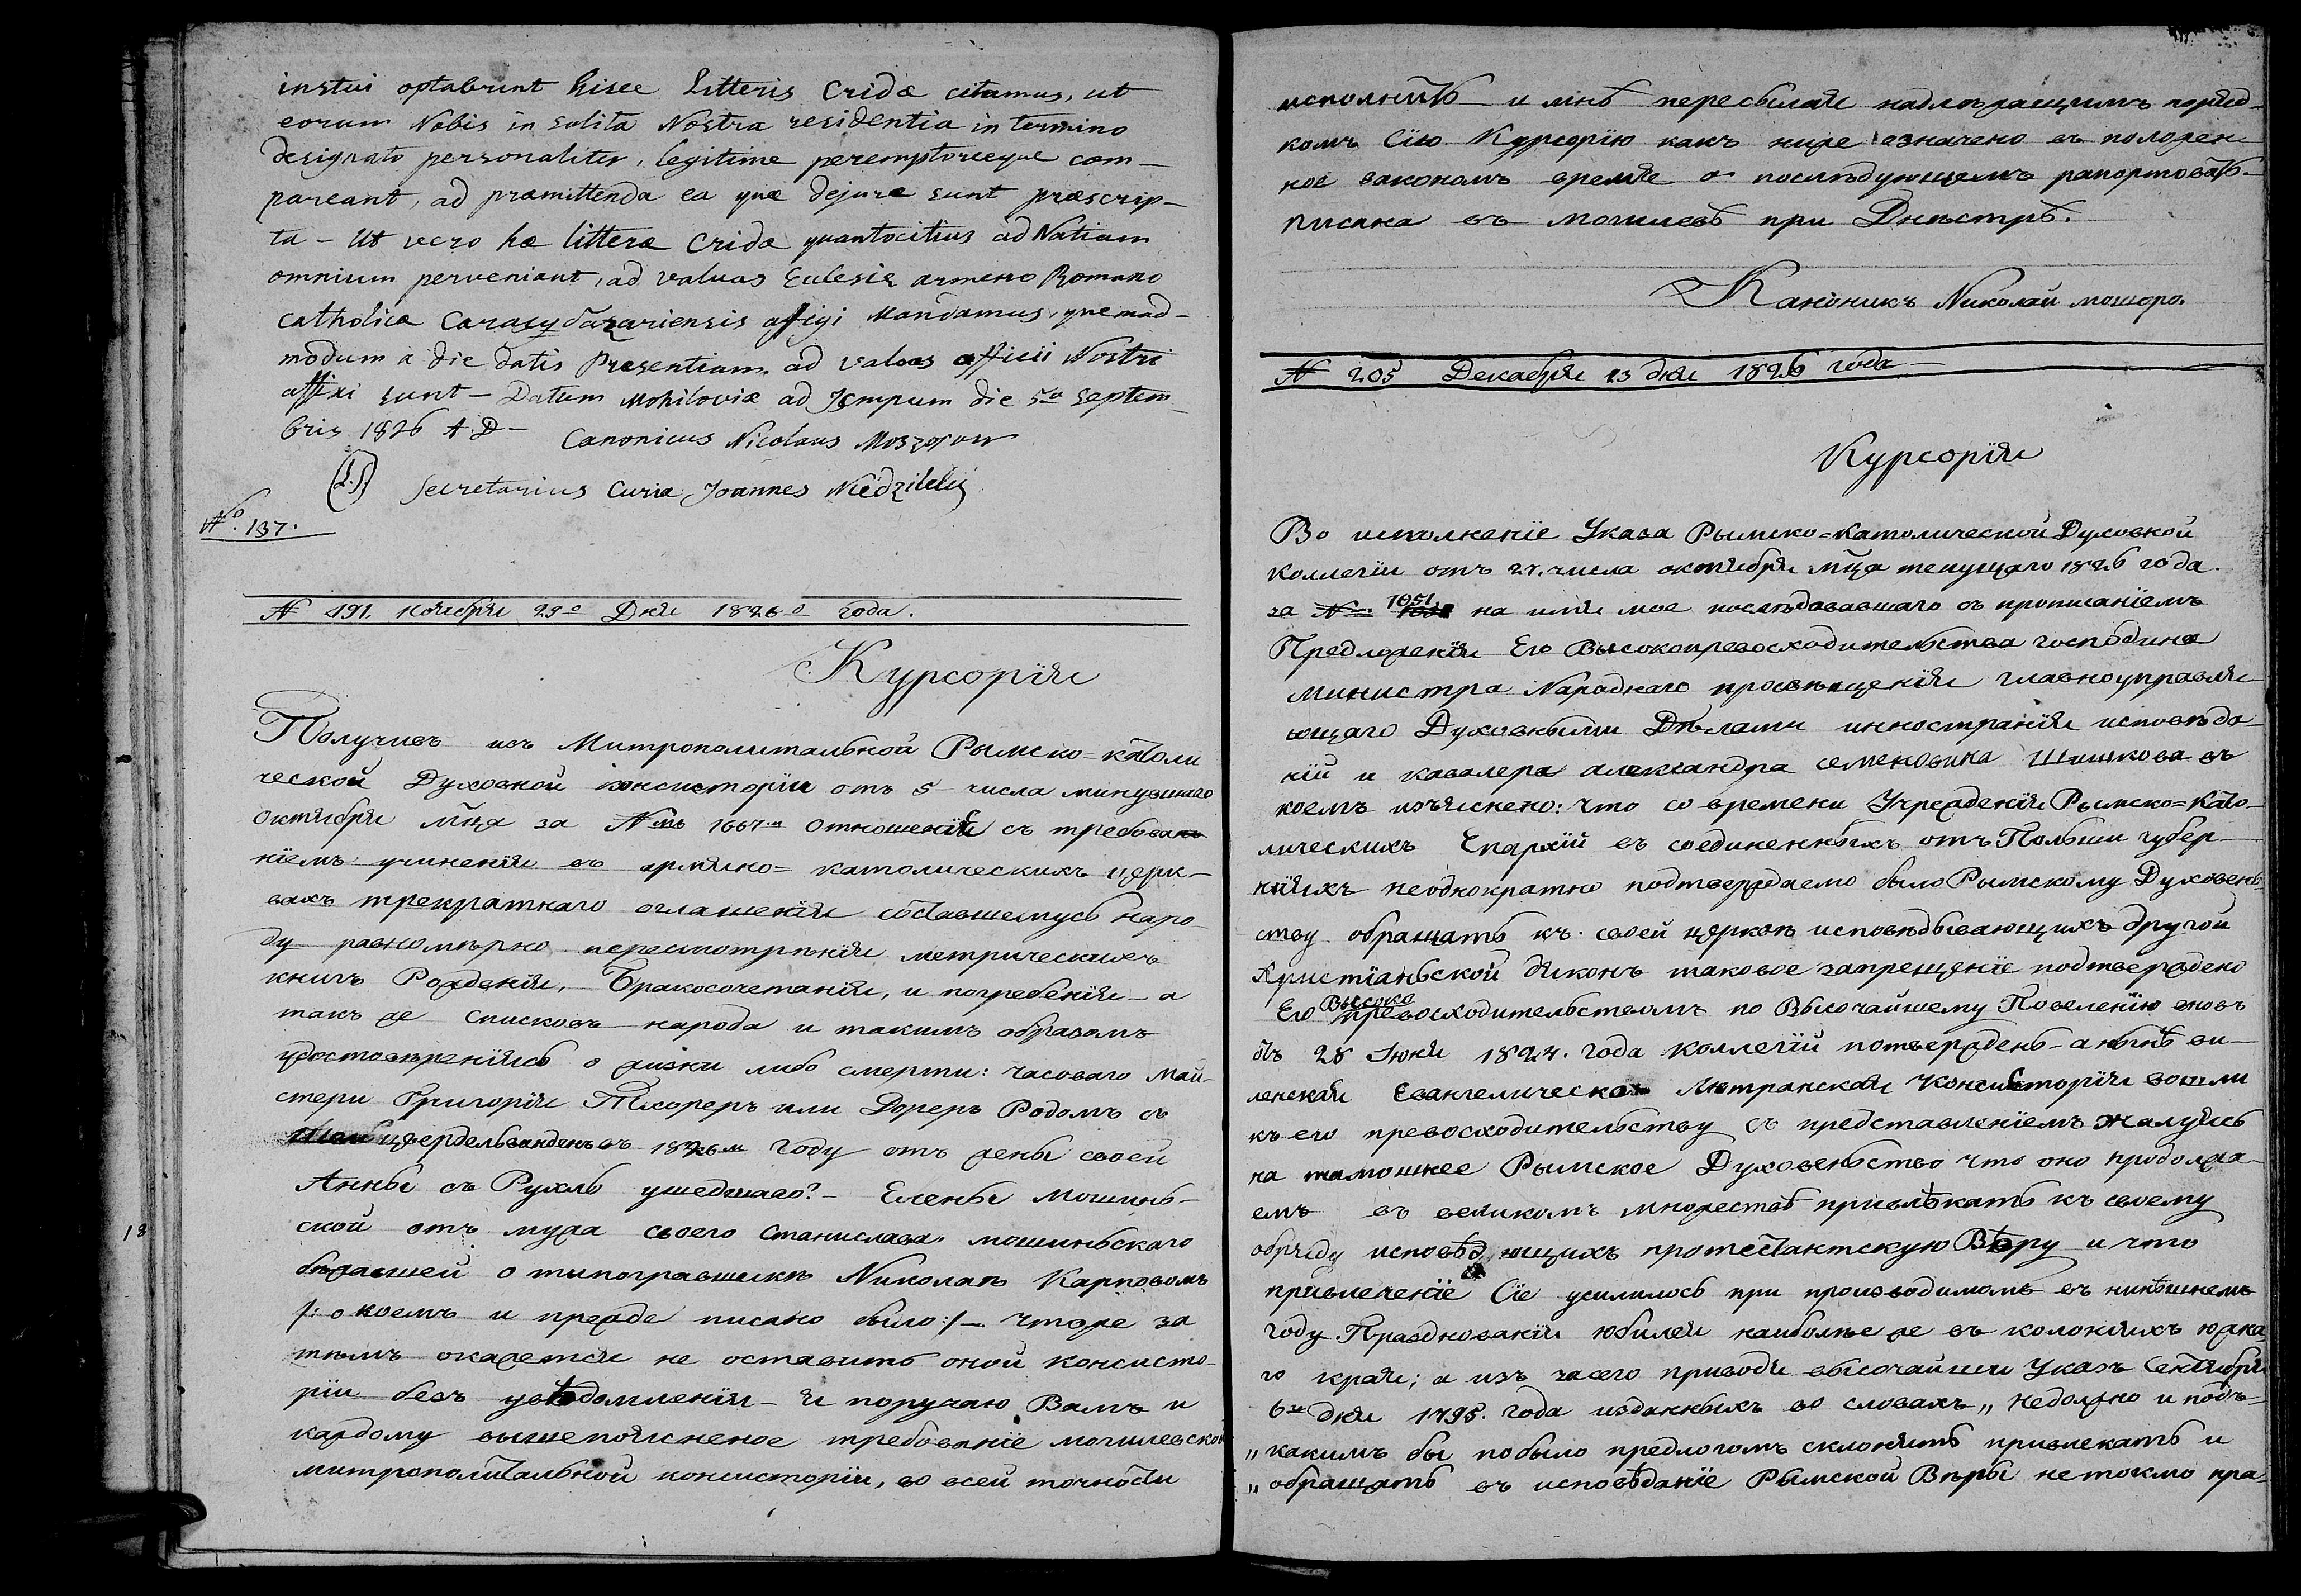 instui optabrunt hisce Litteris Cridæ citamus, ut
eorum Nobis in solita Nostra residentia in termino
designato personaliter, legitime peremptorieque com-
pareant, ad præmittenda ea quæ dejure sunt præscrip-
ta - Ut vero hæ litteræ Cridæ quantocitius ad Notiam
omnium perveniant, ad valvas Eclesiæ armeno Romano
catholicæ Carasybazariensis affigi Mandamus, quemad-
modum a die datis Presentium ad valvas officii Nostri
affixi sunt - Datum Mohiloviæ ad Tempum die 5ta Septem-
bris 1826 A. D - Canonicus Nicolaus Moszorow
(L.S) Secretarius Curiæ Joannes
No. 137.
N 191. ноября 29го Дня 1826го года.
Курсорія
Получивъ изъ Митрополитальной Рымско-католи
ческой Духовной консисторіи отъ 5 числа минувшаго
октября мца за Nмъ 1667м отношеніе съ требова
ніемъ учиненія въ армяно=католическихъ церк-
вахъ трекратнаго оглашенія собравшемусь наро-
ду равномѣрно пересмотрѣнія метрическихъ
книгъ Рожденія, Бракосочетанія, и погребенія - а
такъ же списковъ народа и такимъ образомъ
удостовѣреніясь о жизни либо смерти: часоваго май-
стера Григорія или Дореръ Родомъ съ
въ 1826м году отъ жены своей
Анны съ Рухль ушедшаго? - Елены Мошинь-
ской отъ мужа своего Станислава мошиньскаго
бѣжавшей о типогравшикѣ Николаѣ Карповомъ
/: о коемъ и прежде писано было :/ - Чтоже за
тѣмъ окажется не оставить оной консисто-
ріи безъ увѣдомленія - Я поручаю Вамъ и
каждому вышепоясненое требованіе могилевской
митрополитальной консисторіи, во всей точности
исполнить и мнѣ пересылая надлежащимъ поряд-
комъ Сію Курсорію какъ ниже означено въ положен
ное закономъ время о послѣдующемъ рапортовать-
писана въ могилевѣ при Днѣстрѣ.
Каноникъ Николай мошоро
N 205 Декабря 13 дня 1826 года
Курсорія
Во исполненіе Указа Рымско=католической Духовной
Коллегіи отъ 27. числа октября мца текущаго 1826 года.
за N 1051 на имя мое послѣдовавшаго съ прописаніемъ
Предложенія Его Высокопревосходительства господина
министра Народнаго просвѣщенія главноуправля-
ющаго Духовными Дѣлами инностранія исповѣда-
ній и кавалера александра семеновича Шишкова въ
коемъ изъяснено: что со времени Учрежденія Рымско=Като-
лическихъ Епархій въ соединенныхъ отъ Польши губер-
ніяхъ неоднократно подтверждаемо было Рымскому Духовень-
ству обращать къ своей церквѣ исповѣдывающихъ другой
Христіаньской таковое запрещеніе подтверждено
Его высоко превосходительствомъ по Высочайшему Повеленію вновъ
28 Іюня 1824. года Коллегіи потвержденъ - а нынѣ ви-
ленская Евангелическая Лютранская Консисторія вошли
къ его превосходительству съ представленіемъ жалуясь
на тамошнее Рымское Духовеньство что оно продолжа-
емъ въ великомъ множествѣ привлѣкать къ своему
обряду исповѣдующихъ протестантскую Вѣру и что
привлеченіе Сіе усилилось при производимомъ въ нинѣшнемъ
году Празднованіи юбилея наиболѣе же въ колоніяхъ южна
го края; а изъ часего приводя высочайши Указъ Сентября
6го дня 1795. года изданныхъ во словахъ „ Недолжно и подъ-
„ какимъ бы ни было предлогомъ склонять привлекать и
„ обращать въ исповѣданіе Рымской Вѣры нетокмо пра-